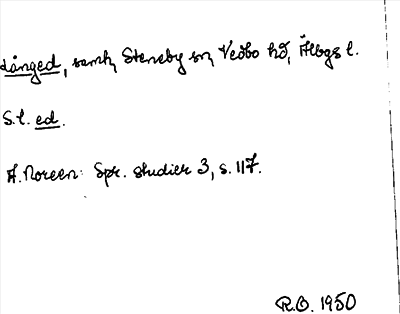 Långed, samh, Steneby sn, Vedbo hd, Älvsbgs l.
S.l. ed.
A. Noreen: Spr. studier 3, s. 117.
R.O. 1950